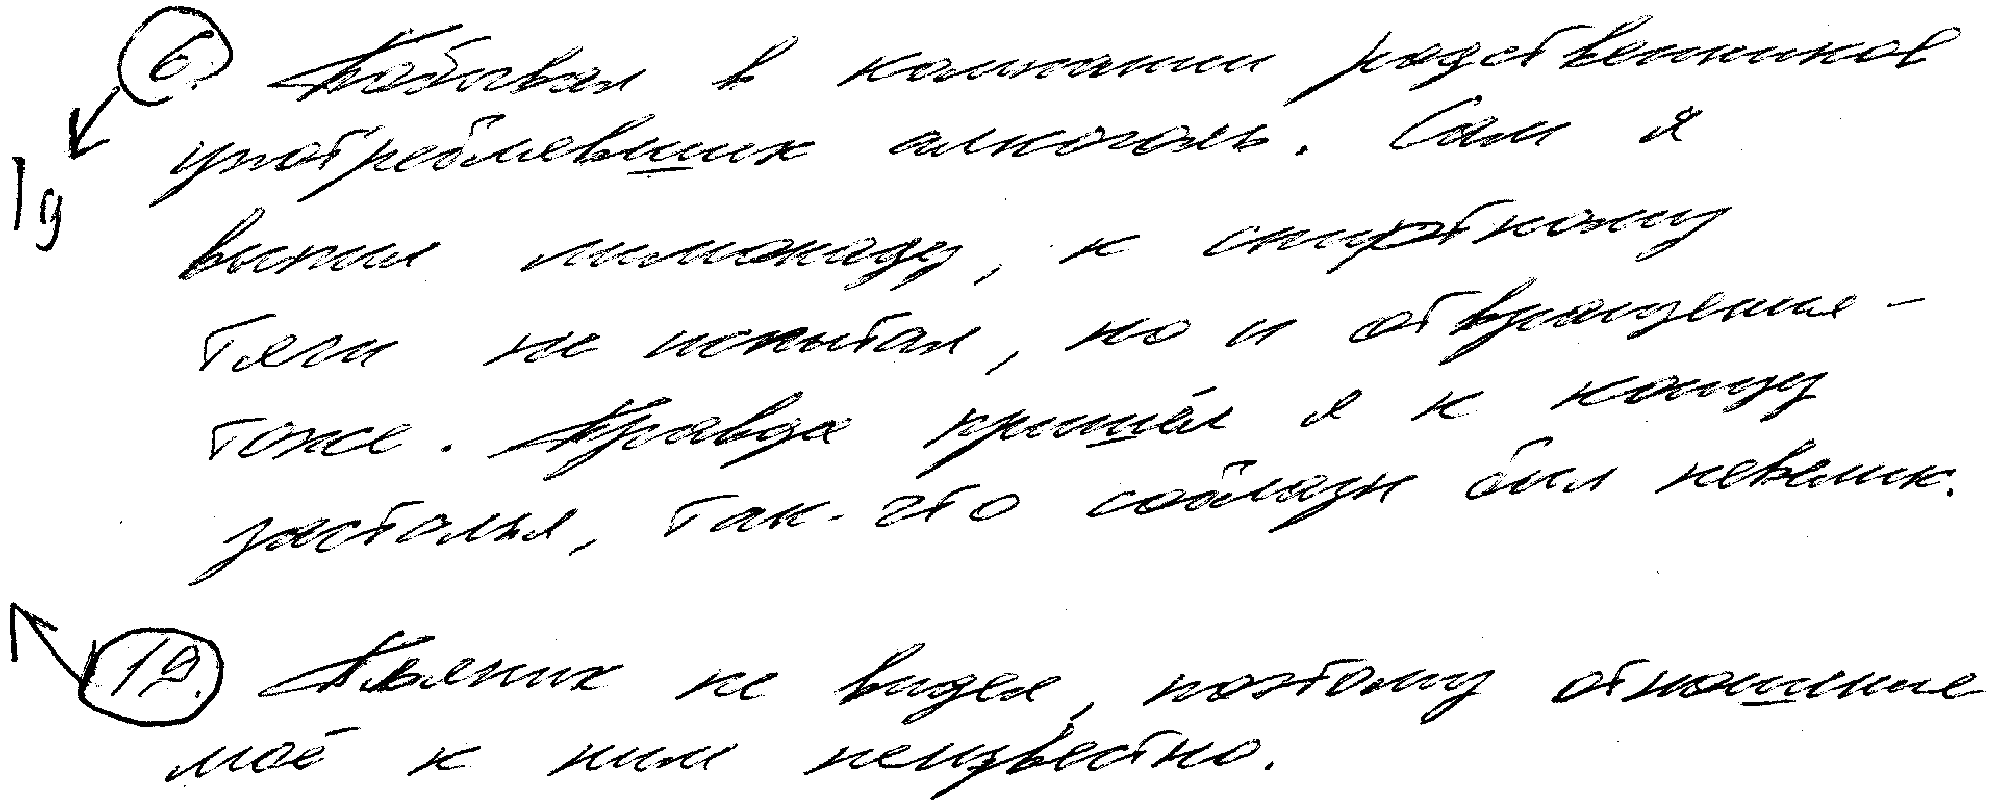 6. Побывал в компании родственников
употреблявших алкоголь. Сам я
19
выпил лимонаду, к спиртному
тяги не испытал, но и отвращения -
тоже. Правда пришёл я к концу
застолья, так-что соблазн был невелик.
19. Пьяных не видел, поэтому отношение
моё к ним неизвестно.